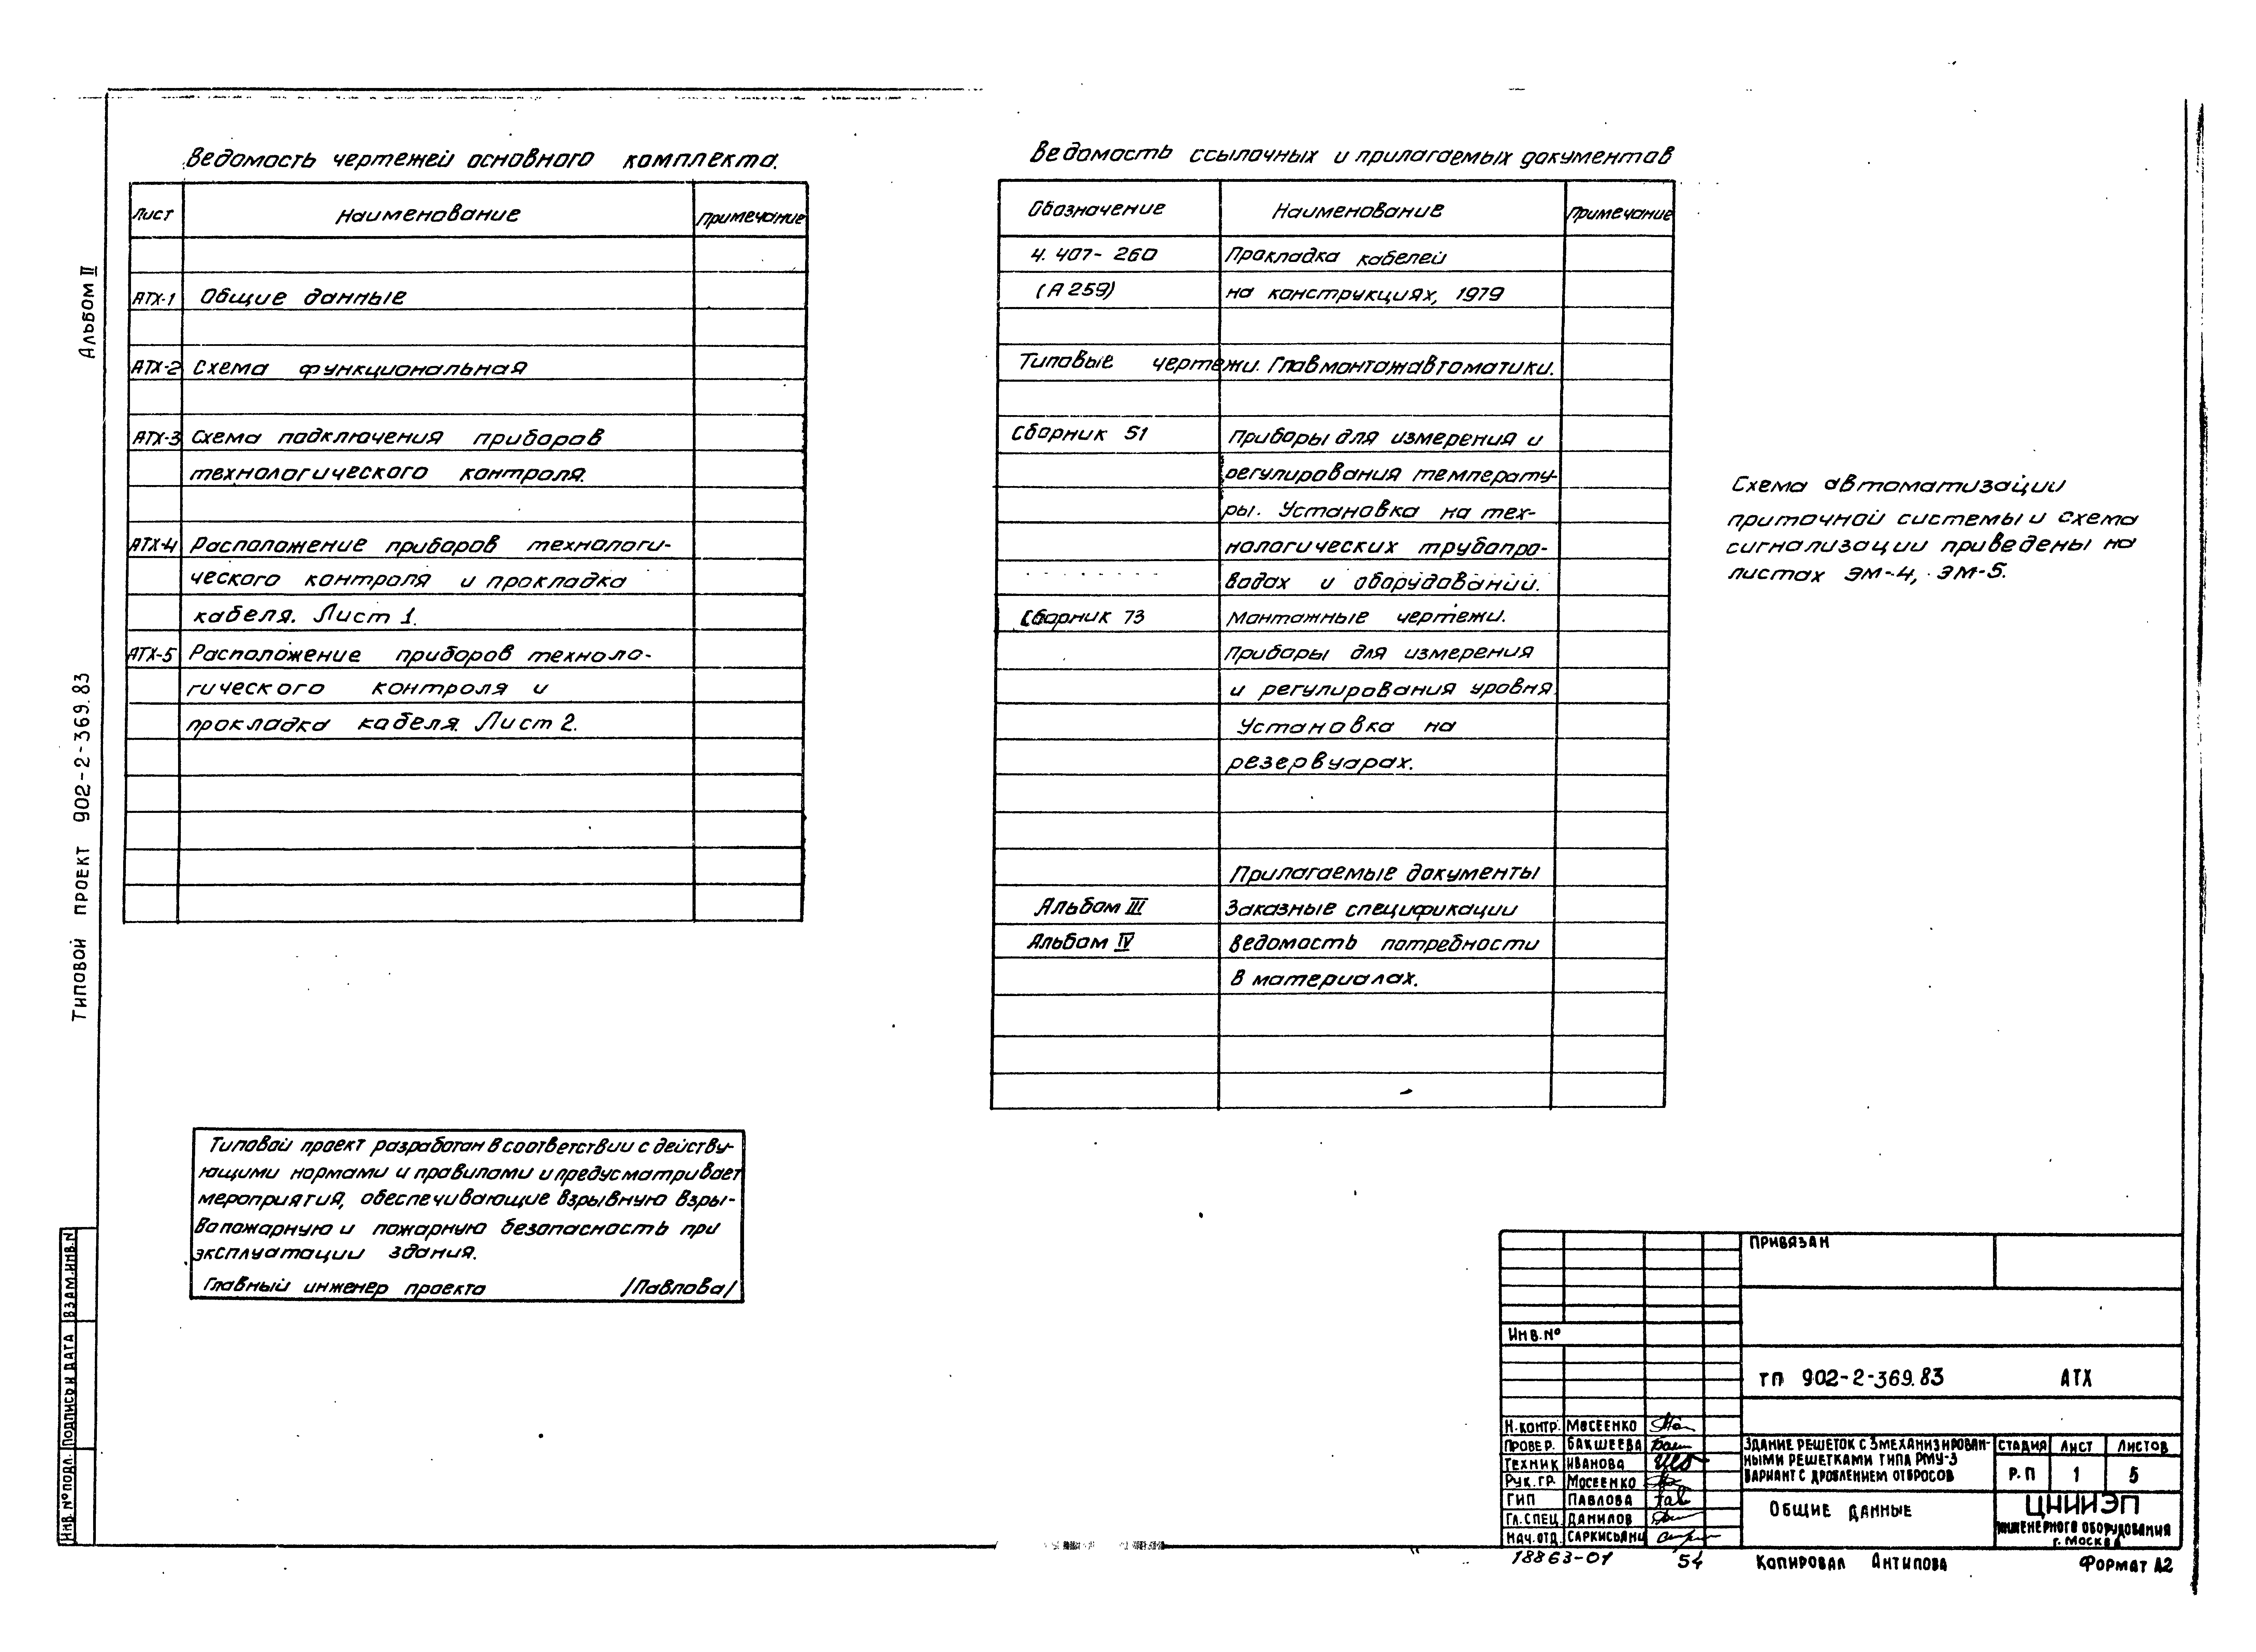 Альбом II
Типовой проект 902-2-369.83
Инв. № подл.
Подпись и дата
Взам. инв. N
Ведомость чертежей основного комплекта.
Лист Наименование Примечание
АТХ-1 Общие данные
АТХ-2 Схема функциональная
АТХ-3 Схема подключения приборов
технологического контроля.
АТХ-4 Расположение приборов технологи-
ческого контроля и прокладка
кабеля. Лист 1.
АТХ-5 Расположение приборов техноло-
гического контроля и
прокладка кабеля. Лист 2.
Типовой проект разработан в соответствии с действу-
ющими нормами и правилами и предусматривает
мероприятия, обеспечивающие взрывную взры-
вопожарную и пожарную безопасность при
эксплуатации здания.
Главный инженер проекта /Павлова/
Ведомость ссылочных и прилагаемых документов
Обозначение Наименование Примечание
4.407-260 Прокладка кабелей
(А259) на конструкциях, 1979
Типовые чертежи. Главмонтажавтоматики.
Сборник 51 Приборы для измерения и
регулирования температу-
ры. Установка на тех-
нологических трубопро-
водах и оборудовании.
Сборник 73 Монтажные чертежи.
Приборы для измерения
и регулирования уровня.
Установка на
резервуарах.
Прилагаемые документы
Альбом III Заказные спецификации
Альбом IV Ведомость потребности
в материалах.
Схема автоматизации
приточной системы и схема
сигнализации приведены на
листах ЭМ-4, ЭМ-5.
Привязан
Инв. №
ТП 902-2-369.83 АТХ
Н.контр. Мосеенко
Провер. Бакшеева
Техник Иванова
Рук. гр. Мосеенко
ГИП Павлова
Гл. спец. Данилов
Нач. отд. Саркисьянц
Здание решеток с 3 механизирован-
ными решетками типа РМУ-3
Вариант с дроблением отбросов
Стадия Лист Листов
Р.П 1 5
Общие данные
ЦНИИЭП
инженерного оборудования
г. Москва
18863-01 54 Копировал Антипова Формат А2